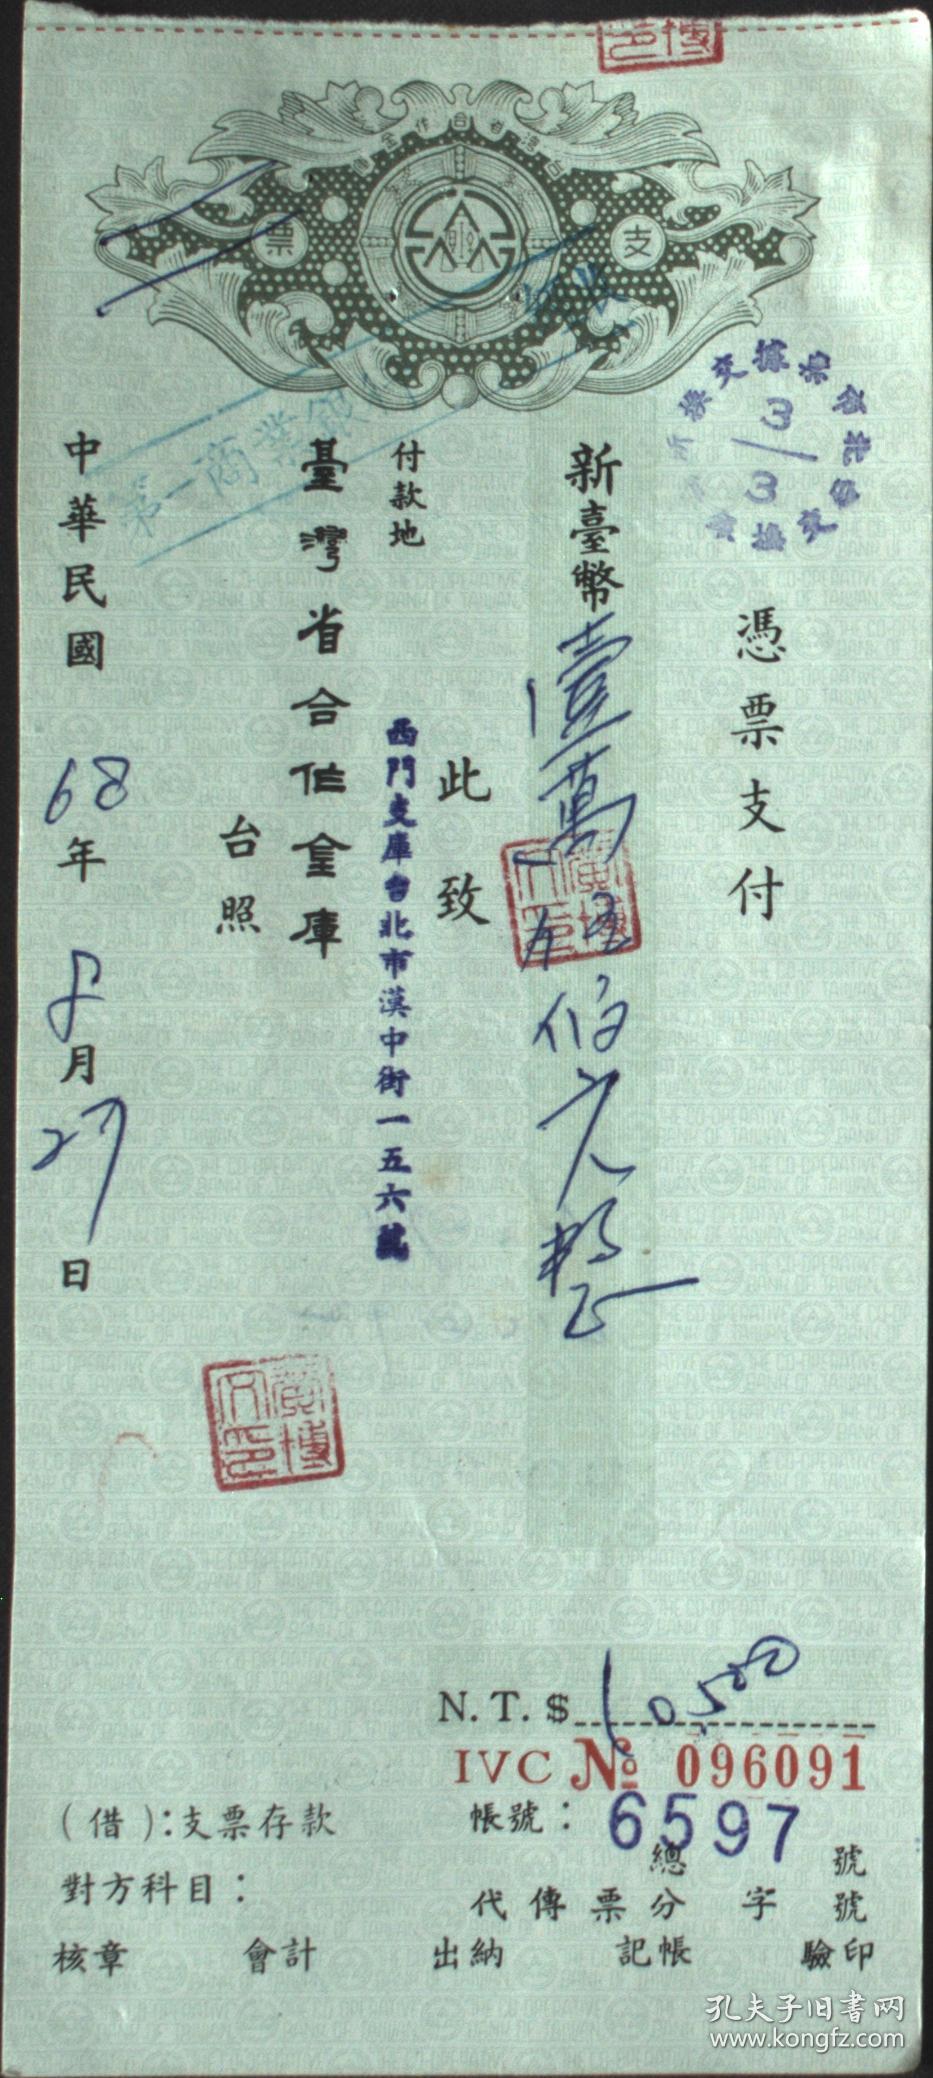 台灣省合作金庫
支票
憑票支付
新臺幣壹萬伍佰元整
此致
付款地
西門支庫台北市漢中街一五六號
臺灣省合作金庫
台照
中華民國68年8月27日
第一商業銀行
3/3
黃博
N.T.$ 10,500
IVC № 096091
(借):支票存款
帳號:6597
對方科目:
總 號
代傳票分 字 號
核章 會計 出納 記帳 驗印
孔夫子旧书网
www.kongfz.com